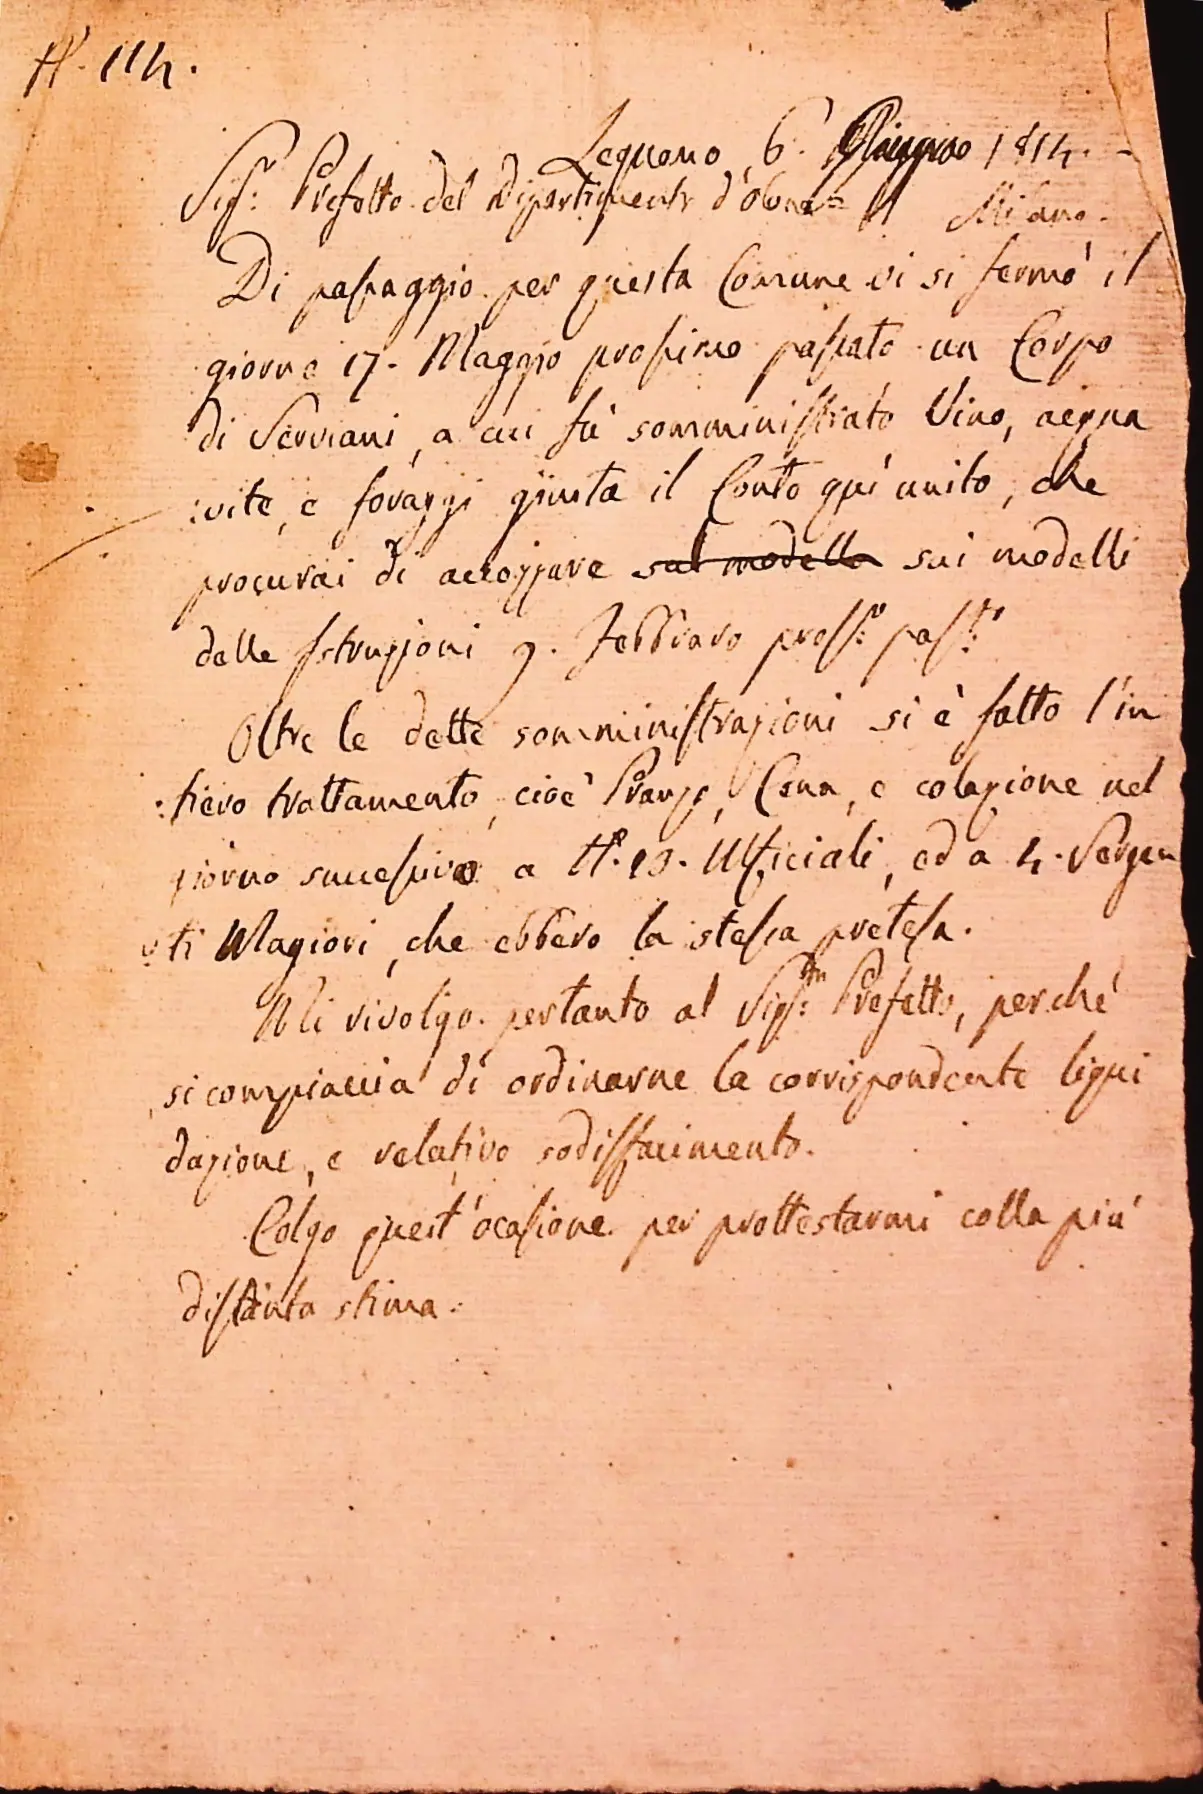 N.° 114.
Legnano 6. Giugno 1814.
Sig.r Prefetto del Dipartimento d'Olona = Milano.
Di passaggio per questa Comune vi si fermò il
giorno 17. Maggio prossimo passato un Corpo
di Serviani, a cui fù somministrato Vino, acqua
:vite, e foraggi giusta il Conto quì unito, che
procurai di accoggiare sul modello sui modelli
delle Istruzioni 9. Febbraro pross.o pass.to
Oltre le dette somministrazioni si è fatto l'in
:tiero trattamento, cioè Pranzo, Cena, e colazione nel
giorno successivo a N.° 19. Ufficiali, ed a 4. Sergen
:ti Magiori, che ebbero la stessa pretesa.
Mi rivolgo pertanto al Sig.r Prefetto, perché
si compiaccia di ordinarne la corrispondente liqui
dazione, e relativo sodisfacimento.
Colgo quest'ocasione per prottestarmi colla più
distinta stima.